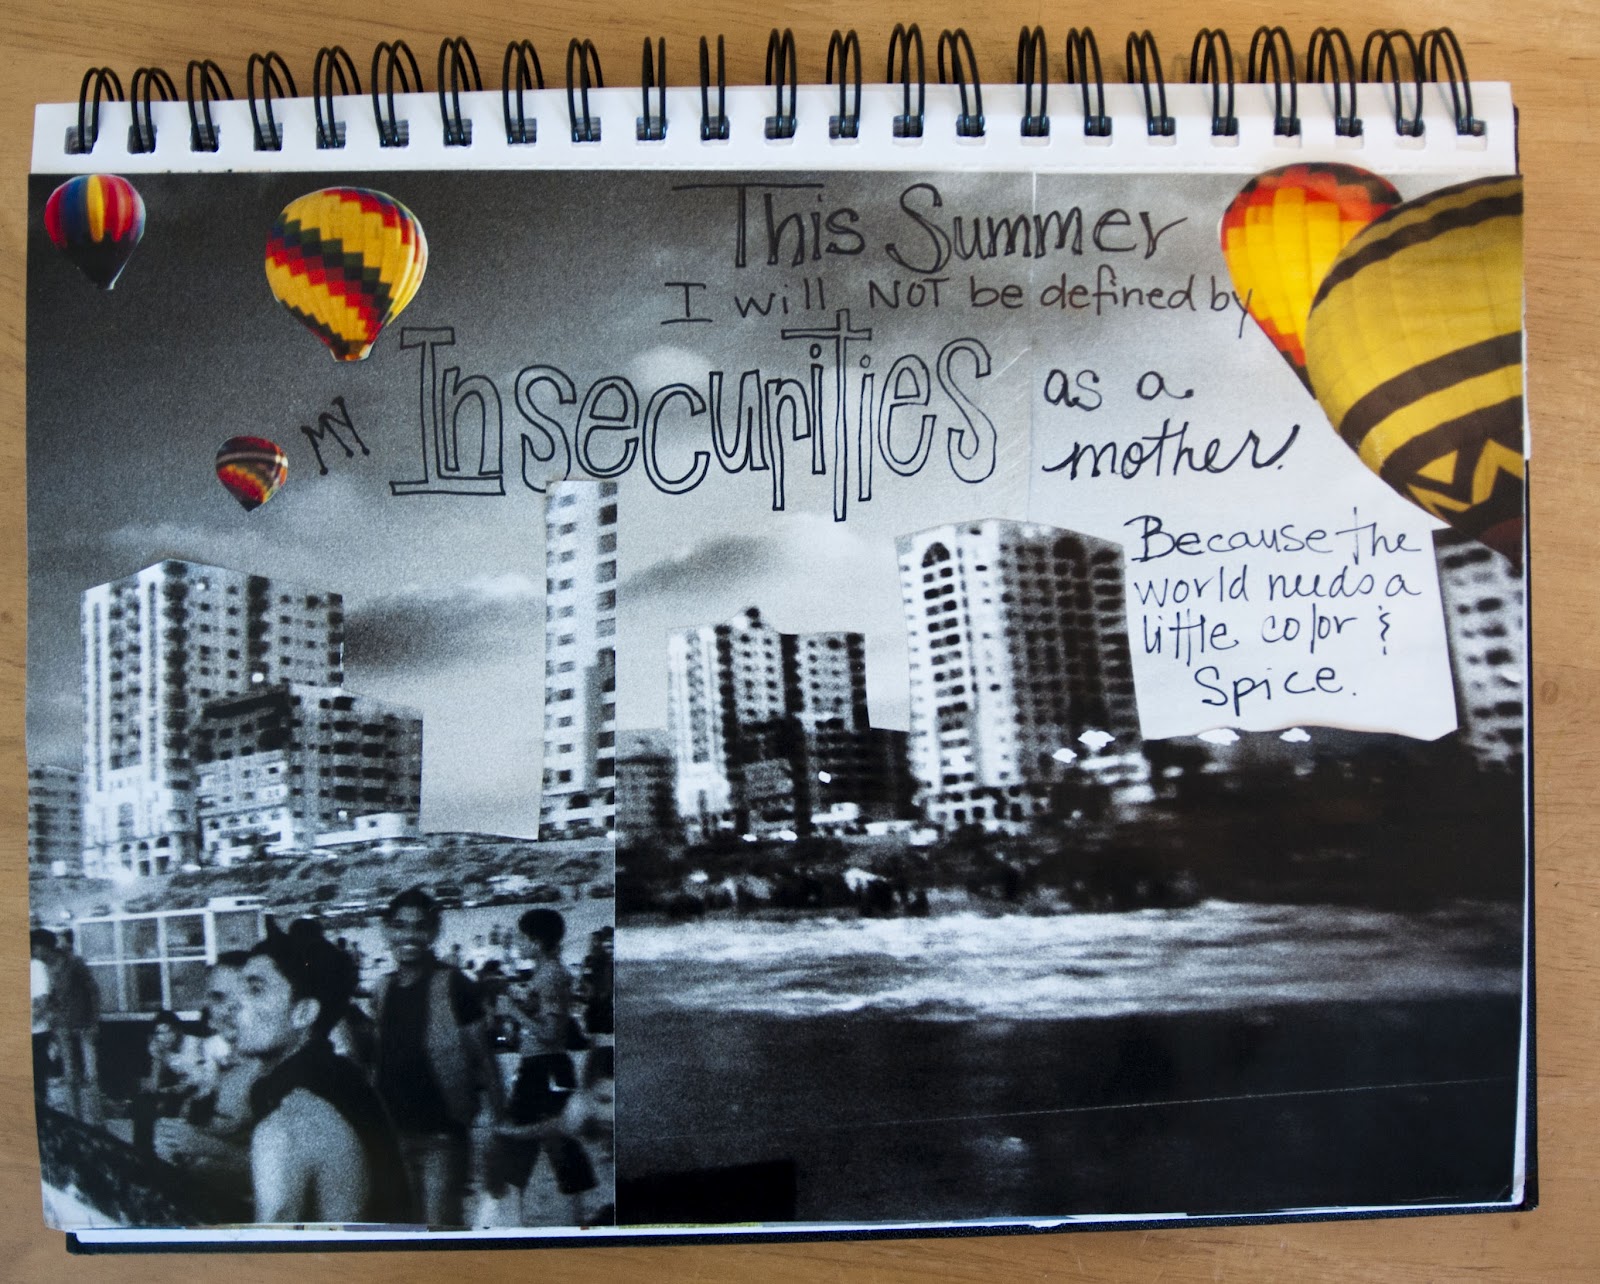 This Summer
I will NOT be defined by
MY InsecuriTies as a
mother.
Because the
world needs a
little color &
Spice.